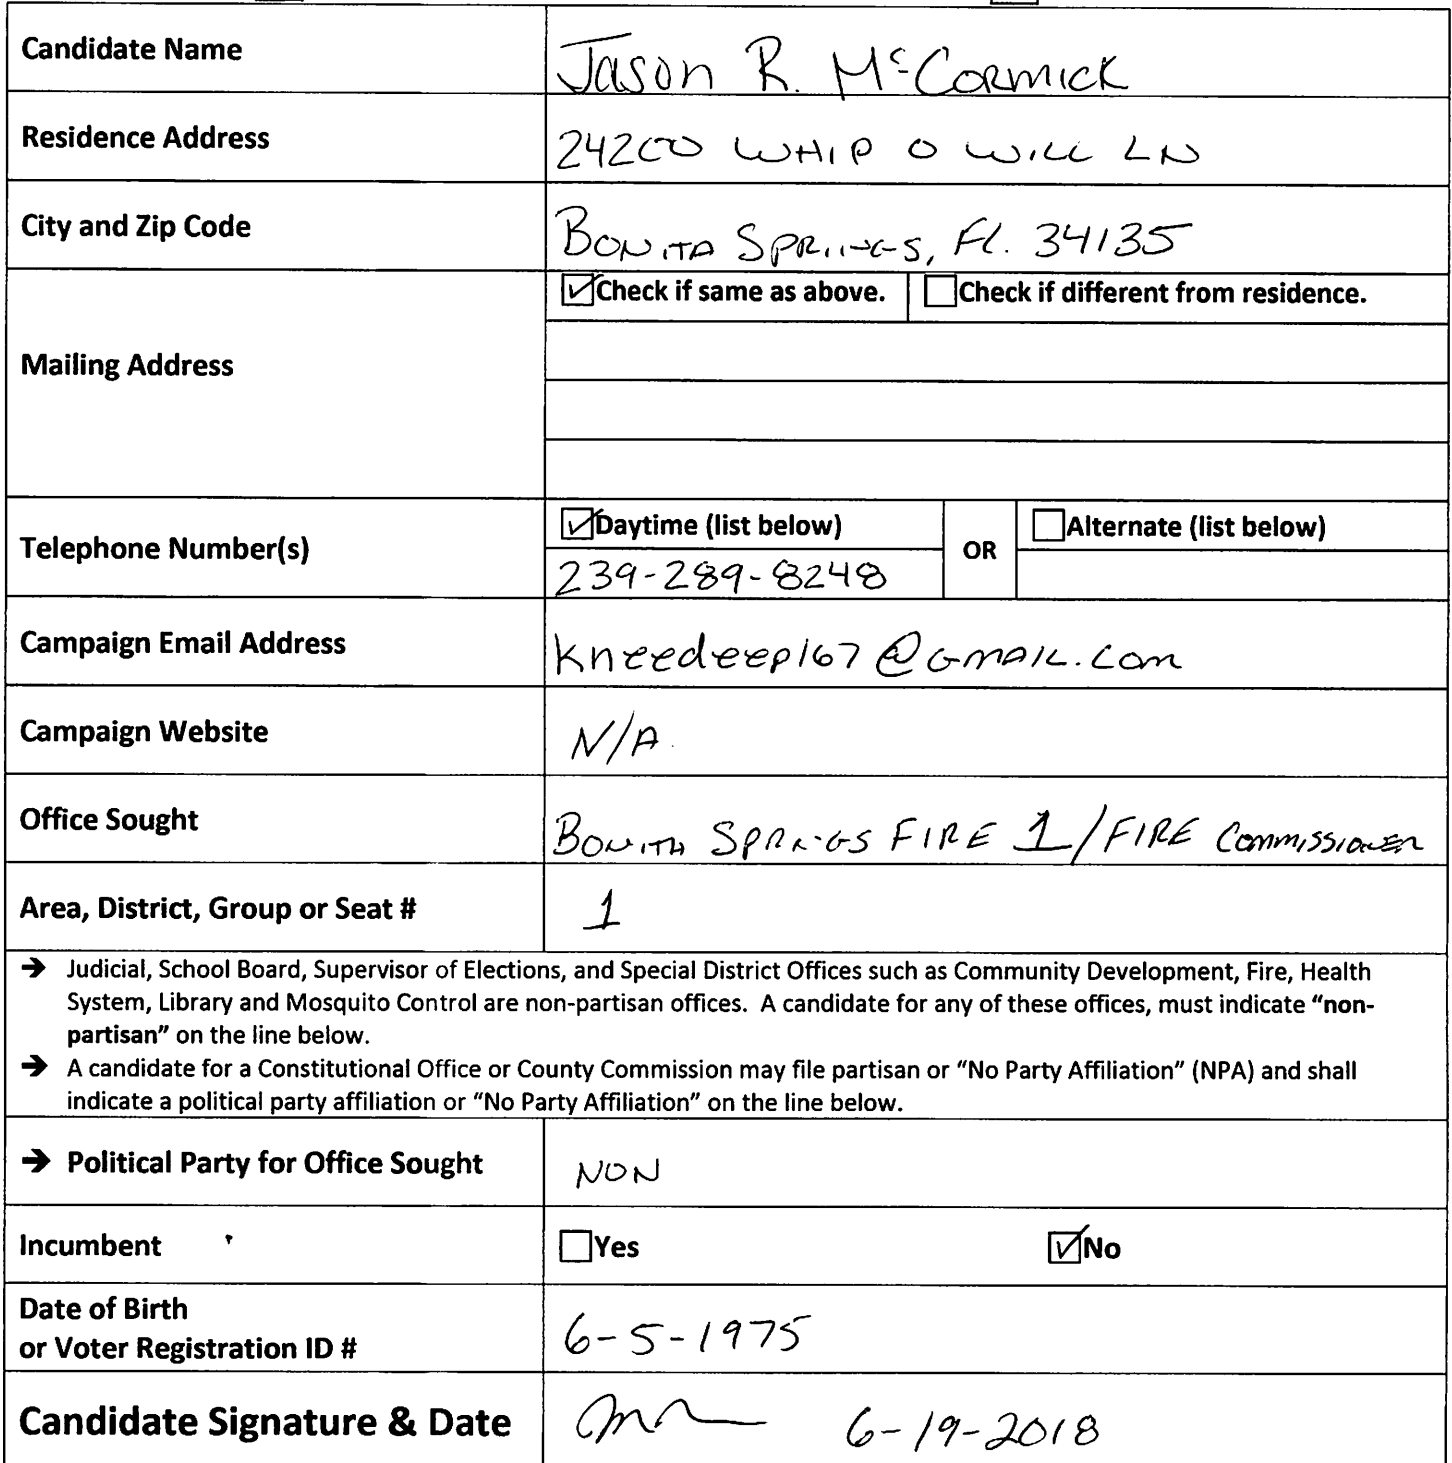 Candidate Name Jason R. McCormick
Residence Address 24200 WHIP O WILL LN
City and Zip Code BONITA SPRINGS, Fl. 34135
☑Check if same as above. ☐Check if different from residence.
Mailing Address
☑Daytime (list below) OR ☐Alternate (list below)
Telephone Number(s)
239-289-8248
Campaign Email Address kneedeep167@GMAIL.com
Campaign Website N/A
Office Sought BONITA SPRINGS FIRE 1/FIRE Commissioner
Area, District, Group or Seat # 1
→ Judicial, School Board, Supervisor of Elections, and Special District Offices such as Community Development, Fire, Health
System, Library and Mosquito Control are non-partisan offices. A candidate for any of these offices, must indicate “non-
partisan” on the line below.
→ A candidate for a Constitutional Office or County Commission may file partisan or “No Party Affiliation” (NPA) and shall
indicate a political party affiliation or “No Party Affiliation” on the line below.
→ Political Party for Office Sought NON
Incumbent ☐Yes ☑No
Date of Birth
or Voter Registration ID # 6-5-1975
Candidate Signature & Date 6-19-2018